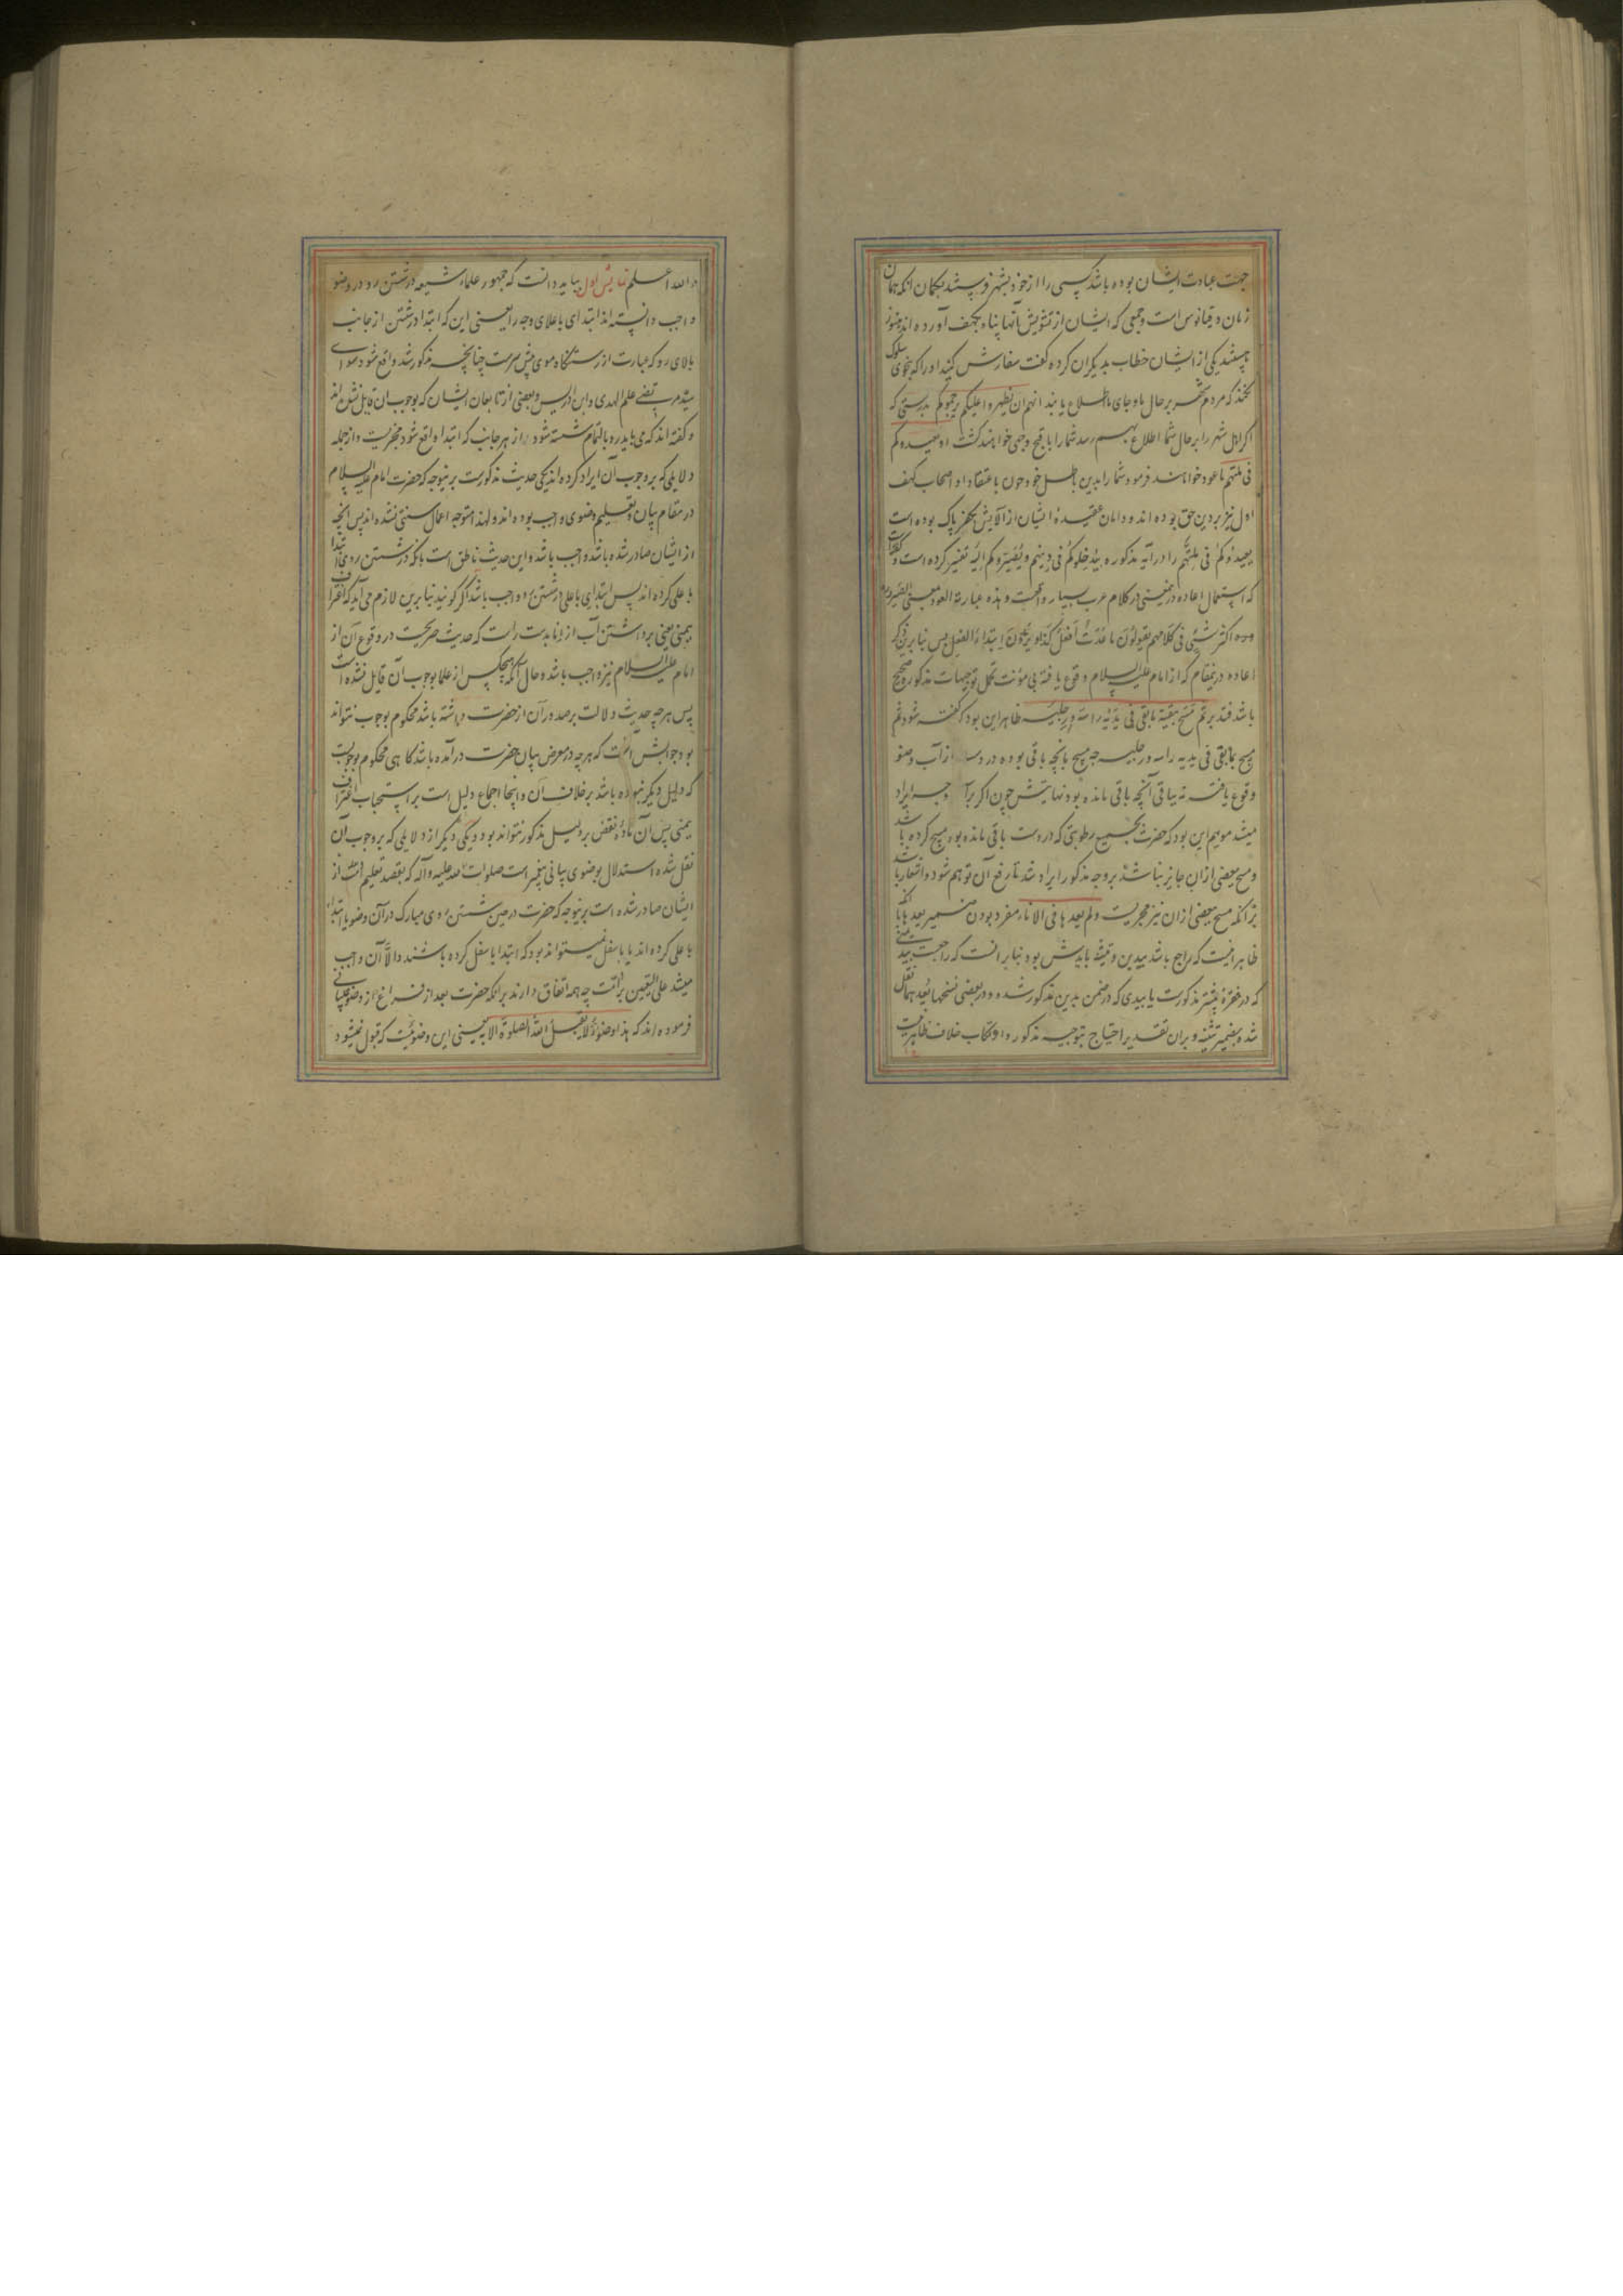 جهت عبادت ایشان بوده باشد کسی را از خود بشهر فرستند بکمان انکه همان
زمان دقیانوس است و جمعی که ایشان از تشویش آنها پناه بکهف آورده اند هنوز
یکی از ایشان خطاب بدیکران کرده کفت سفارش کنید او را که بنحوی سلوک
نکند که مردم شهر بر حال ما و جای ما اطلاع یابند انهم ان یظهروا علیکم یرجموکم بدرستی که
اکر اهل شهر را بر حال شما اطلاع بهم رسد شما را باقبح وجهی خواهند کشت او یعیدوکم
فی ملتهم یا عود خواهند فرمود شما را بدین باطل خود چون باعتقاد او اصحاب کهف
اول نیز بر دین حق بوده اند و دامان عقیدهٔ ایشان از آلایش کفر پاک بوده است
یعیدوکم فی ملتهم را در آیه مذکوره بیدخلوکم فی دینهم و یصیروکم الیه تفسیر کرده است و گفته
که استعمال اعاده درین معنی در کلام عرب بسیار واقعست و هذه عبارته العود بمعنی الصیرورة
اکثر شیٔ فی کلامهم یقولون ما عدت افعل کذا و یریدون ابتداء الفعل پس بنا برین ذکر
اعاده درینمقام که از امام علیه السلام وقوع یافته بی مؤنت تحمل توجیهات مذکوره صحیح
باشد فتدبر ثم مسح ببقیة ما بقی فی یدیه راسه و رجلیه ظاهر این بود که گفته شود ثم
مسح بما بقی فی یدیه راسه و رجلیه چه مسح بانچه باقی بوده در دست از آب وضو
وقوع یافته نه بباقی آنچه باقی مانده بود نهایتش چون اکر برآن وجه ایراد
میشد موهم این بود که حضرت بجمیع رطوبتی که در دست باقی مانده بود مسح کرده باشد
و مسح ببعضی از ان جایز نباشد بر وجه مذکور ایراد شد تا رفع آن توهم شود و اشعار باشد
بر انکه مسح ببعضی از ان نیز مجزیست و لم یعدها فی الاناء مفرد بودن ضمیر یعدها با آنکه
ظاهر انست که راجع باشد بیدین و تثنیه بایدش بود بنا بر انست که راجعست بید
که در فقرهٔ پیشتر مذکورست یا بیدی که در ضمن یدین مذکور شده و در بعضی نسخها یعدهما نقل
شده بضمیر تثنیه و بران تقدیر احتیاج بتوجیه مذکور و ارتکاب خلاف ظاهر نیست
و الله اعلم نمایش اول بباید دانست که جمهور علماء شیعه در شستن رو در وضو
واجب دانسته اند ابتدای باعلای وجه را یعنی این که ابتدا در شستن از جانب
بالای رو که عبارت از رستنکاه موی پیش سرست چنانچه مذکور شد واقع شود سوای
سید مرتضی علم الهدی و ابن ادریس و بعضی از تابعان ایشان که بوجوب ان قایل نشده اند
و کفته اند که می باید رو بالتمام شسته شود از هر جانب که ابتدا واقع شود مجزیست و از جمله
دلایلی که بر وجوب آن ایراد کرده اند یکی حدیث مذکورست برینوجه که حضرت امام علیه السلام
در مقام بیان و تعلیم وضوی واجب بوده اند و لهذا متوجه اعمال سنتی نشده اند پس انچه
از ایشان صادر شده باشد واجب باشد و این حدیث ناطق است بانکه در شستن روی ابتدا
باعلی کرده اند پس ابتدای باعلی در شستن رو واجب باشد اکر کویند بنا برین لازم می آید که اغتراف
بیمنی یعنی برداشتن آب از اناء بدست راست که حدیث صریحست در وقوع آن از
امام علیه السلام نیز واجب باشد و حال آنکه هیچکس از علما بوجوب آن قایل نشده است
پس هر چه حدیث دلالت بر صدور آن از حضرت داشته باشد محکوم بوجوب نتواند
بود جوابش آنست که هر چه در معرض بیان حضرت درآمده باشد کاهی محکوم بوجوبست
که دلیل دیکر نبوده باشد بر خلاف آن و اینجا اجماع دلیل است بر استحباب اغتراف
بیمنی پس آن مادهٔ نقض بر دلیل مذکور نتواند بود و یکی دیکر از دلایلی که بر وجوب آن
نقل شده استدلال بوضوی بیانی پیغمبر است صلوات الله علیه و آله که بقصد تعلیم امت از
ایشان صادر شده است برینوجه که حضرت در حین شستن روی مبارک در آن وضو یا ابتدا
باعلی کرده اند یا باسفل نمیتواند بود که ابتدا باسفل کرده باشند و الا آن واجب
میشد علی التعیین بر امت چه همه اتفاق دارند بر انکه حضرت بعد از فراغ از وضوی بیانی
فرموده اند که هذا وضوء لا یقبل الله الصلوة الا به یعنی این وضوئیست که قبول نمیشود